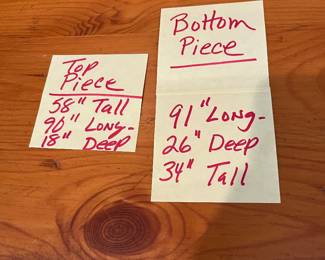 Top
Piece
58" Tall
90" Long-
18" Deep
Bottom
Piece
91" Long-
26" Deep
34" Tall